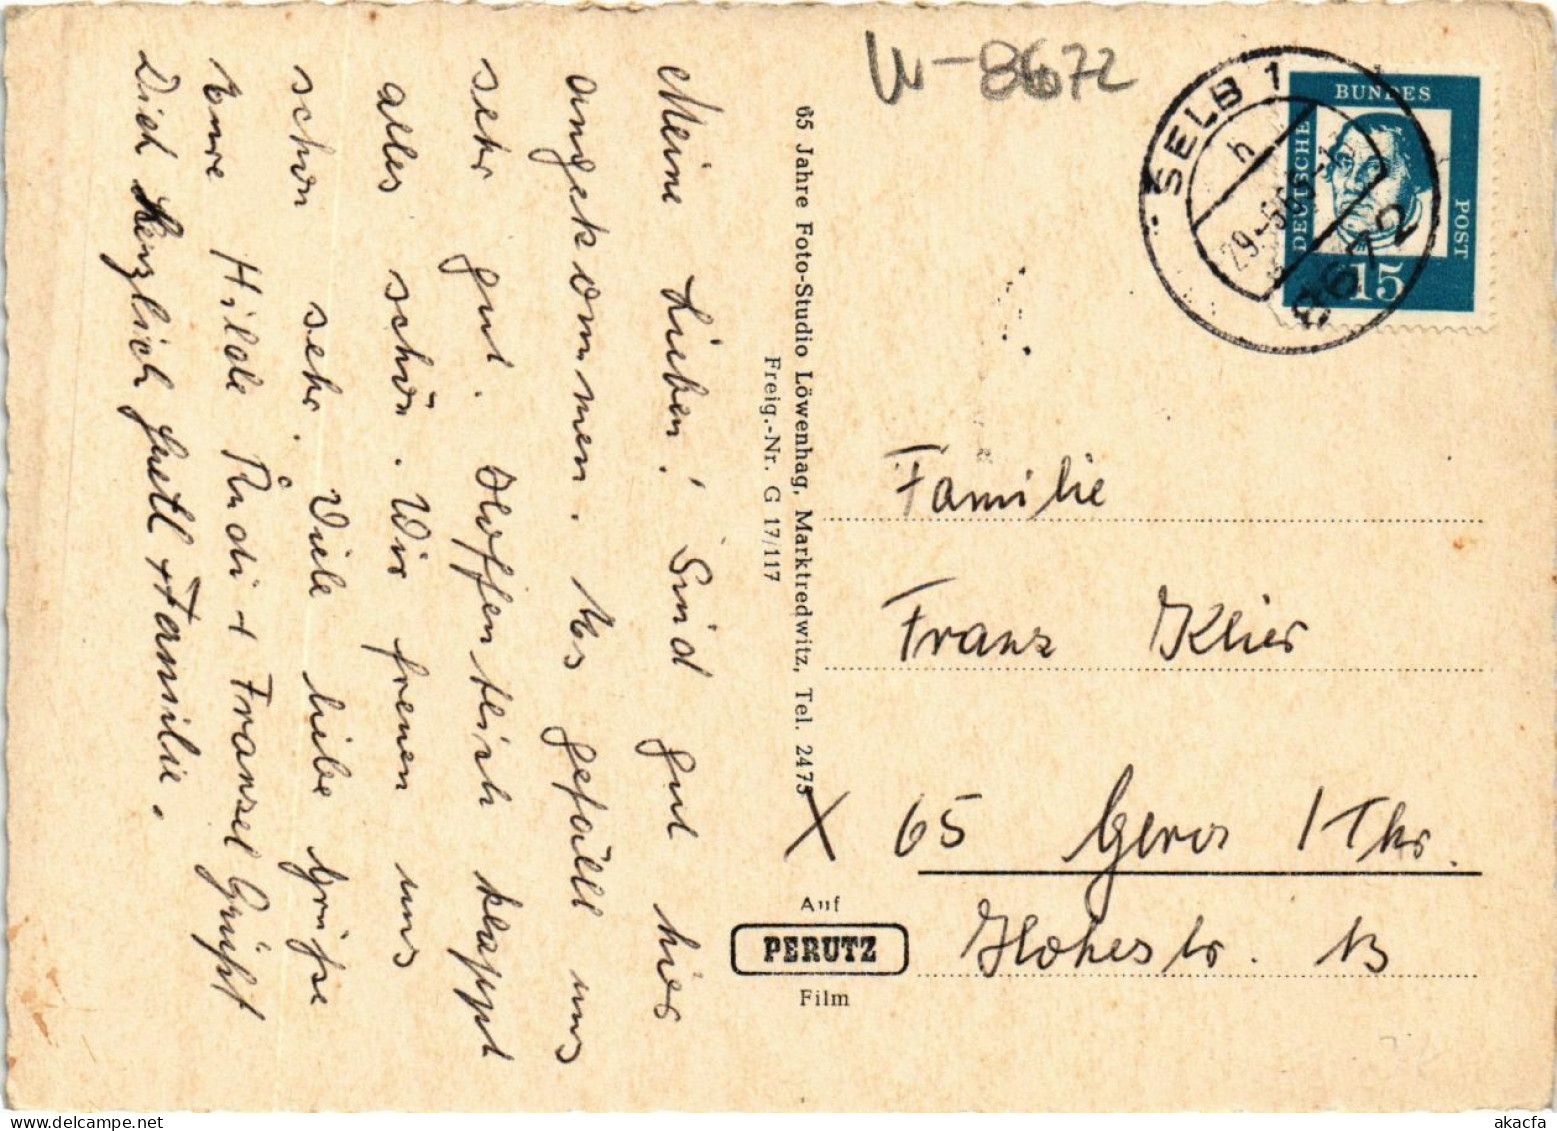 W-8672
SELB 1
h
29.-6.65-1
8672
DEUTSCHE
BUNDES
POST
15
Meine Lieben! Sind gut hier
angekommen. Es gefällt uns
sehr gut. Hoffentlich klappt
alles schön. Wir freuen uns
schon sehr. Viele liebe Grüße
Eure Hilde Rudi + Franzel Grüßt
Dich Herzlich + Familie.
65 Jahre Foto-Studio Löwenhag, Marktredwitz, Tel. 2475
Freig.-Nr. G 17/117
Auf
PERUTZ
Film
Familie
Franz Klier
X 65 Gera /Thr.
Hohestr. 13
akacfa